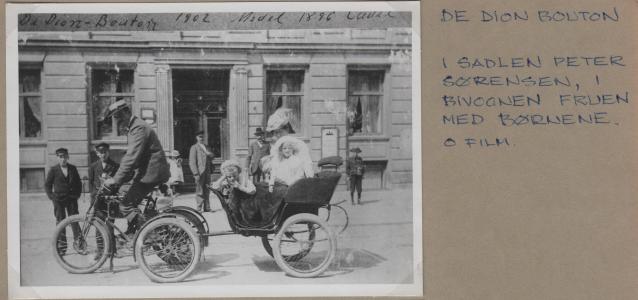 De Dion-Bouton 1902 Model 1896
DE DION BOUTON
I SADLEN PETER
SØRENSEN, I
BIVOGNEN FRUEN
MED BØRNENE.
O FILM.